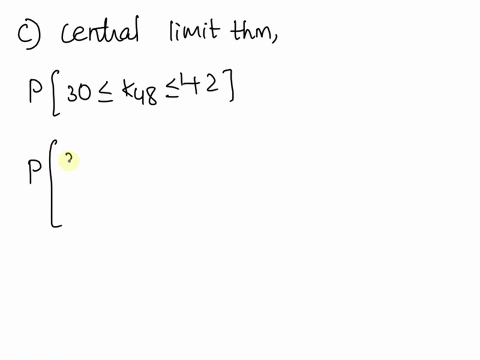 c) central limit thm,
P[30 ≤ K48 ≤ 42]
P[3